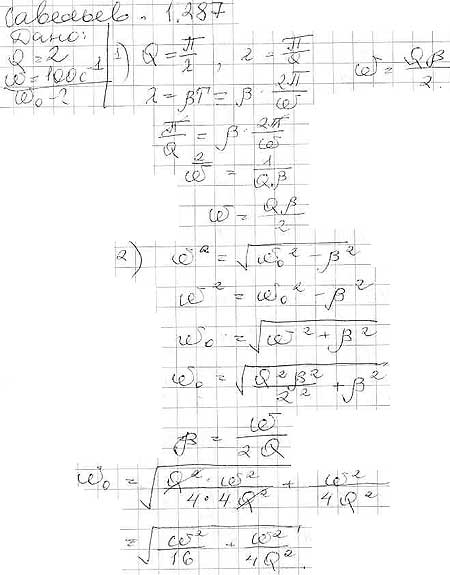 Савельев. 1.287
Дано:
Q = 2
ω = 100c⁻¹
ω₀ - ?
1) Q = π/λ , λ = π/Q
ω = Qβ/2
λ = βT = β · 2π/ω
π/Q = β · 2π/ω
2/ω = 1/Q·β
ω = Qβ/2
2) ω² = √(ω₀² − β²)
ω² = ω₀² − β²
ω₀ = √(ω² + β²)
ω₀ = √(Q²β²/2² + β²)
β = ω/2Q
ω₀ = √(Q² · ω²/4·4Q²) + ω²/4Q²
= √(ω²/16 + ω²/4Q²)